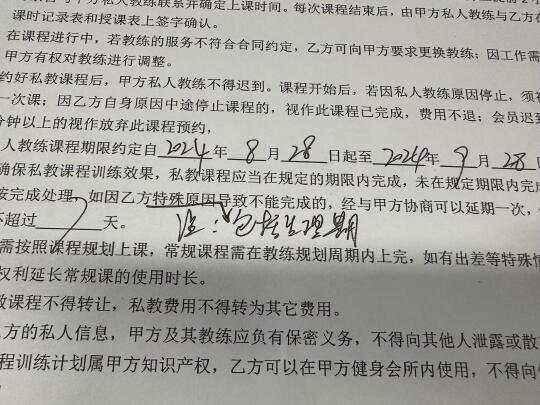 与甲方私人教练联系并确定上课时间。每次课程结束后，由甲方私人教练与乙方在
课时记录表和授课表上签字确认。
在课程进行中，若教练的服务不符合合同约定，乙方可向甲方要求更换教练；因工作需
甲方有权对教练进行调整。
约好私教课程后，甲方私人教练不得迟到。课程开始后，若因私人教练原因停止，须补
一次课；因乙方自身原因中途停止课程的，视作此课程已完成，费用不退；会员迟到
分钟以上的视作放弃此课程预约，
人教练课程期限约定自2024年8月28日起至2024年9月28日
确保私教课程训练效果，私教课程应当在规定的期限内完成，未在规定期限内完成
按完成处理，如因乙方特殊原因导致不能完成的，经与甲方协商可以延期一次，
不超过7天。
注：包括生理期
需按照课程规划上课，常规课程需在教练规划周期内上完，如有出差等特殊情
权利延长常规课的使用时长。
教课程不得转让，私教费用不得转为其它费用。
乙方的私人信息，甲方及其教练应负有保密义务，不得向其他人泄露或散
程训练计划属甲方知识产权，乙方可以在甲方健身会所内使用，不得向